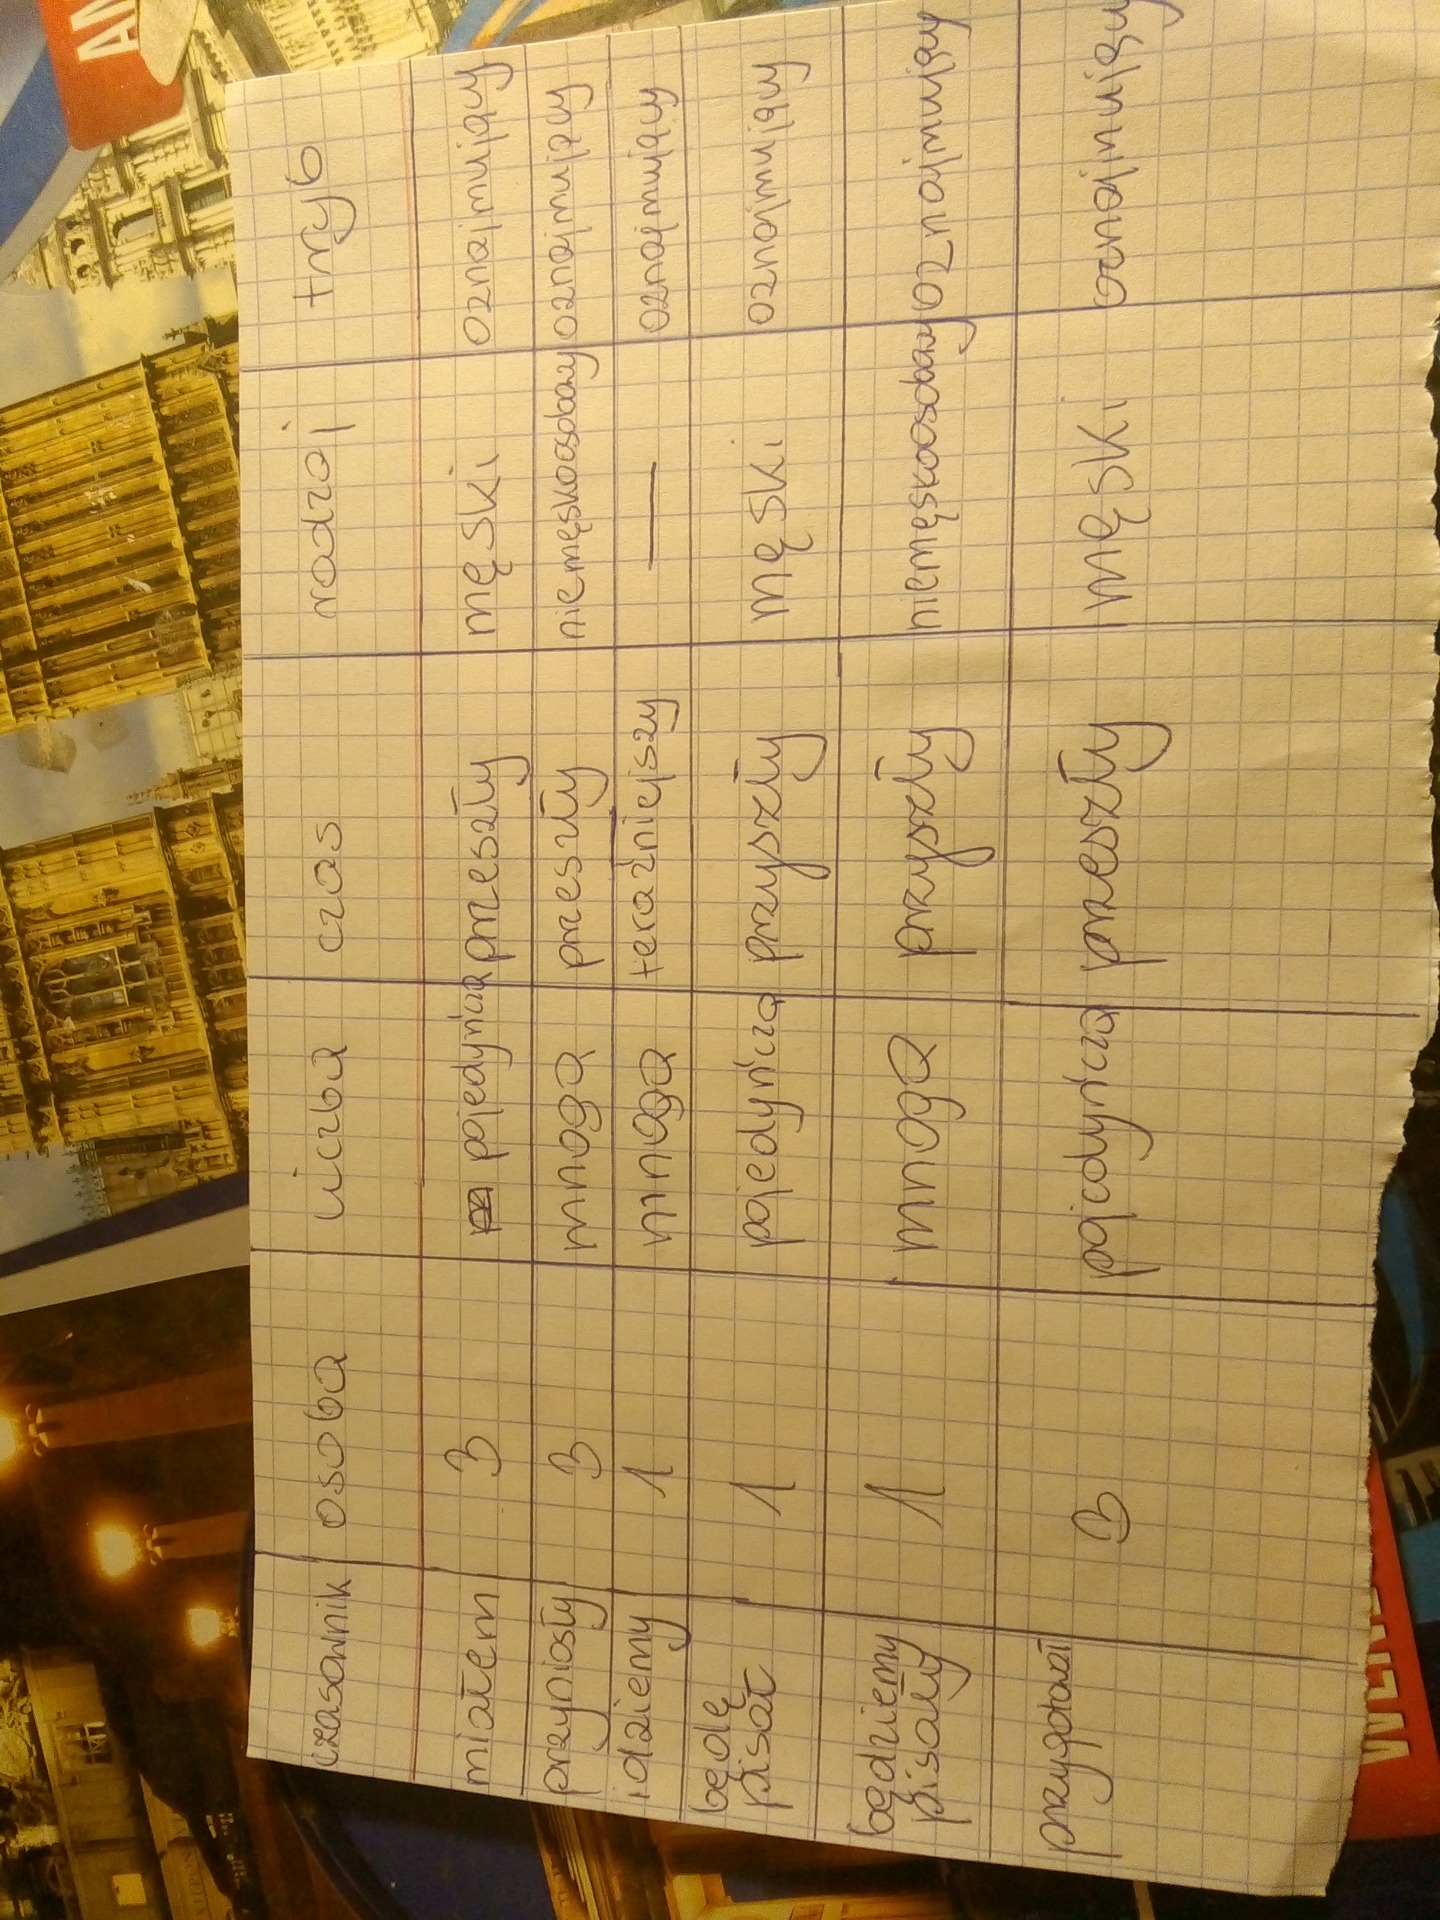 czasownik osoba liczba czas rodzaj tryb
miałem 3 pojedyńcza przeszły męski oznajmujący
przyniosły 3 mnoga przeszły niemęskoosobowy oznajmujący
idziemy 1 mnoga teraźniejszy — oznajmujący
będę pisał 1 pojedyńcza przyszły męski oznajmujący
będziemy pisały 1 mnoga przyszły niemęskoosobowy oznajmujący
przygotował 3 pojedyńcza przeszły męski oznajmujący